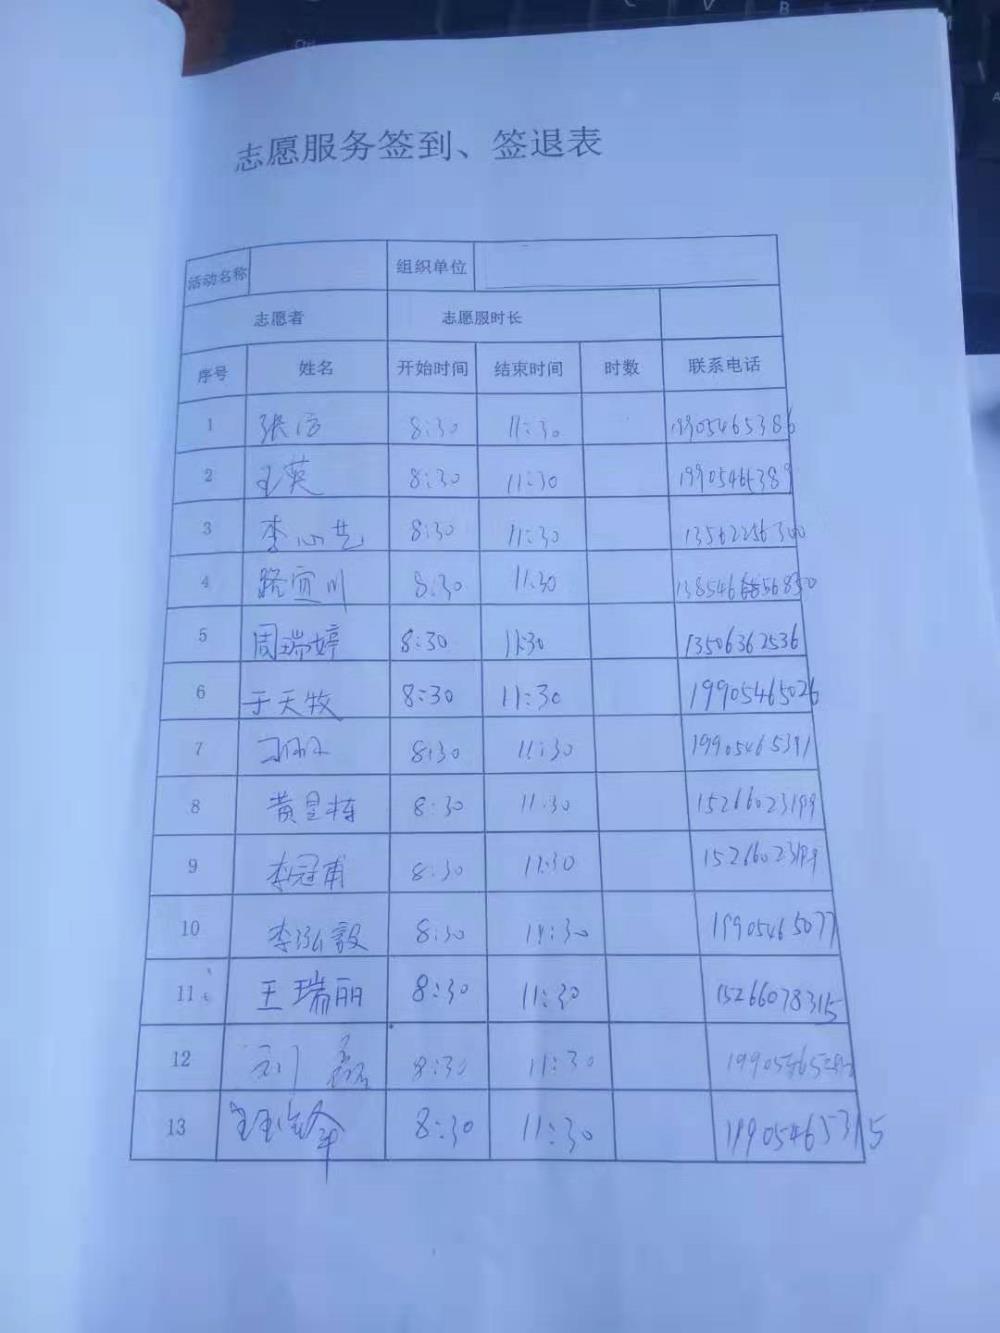 志愿服务签到、签退表
活动名称 组织单位
志愿者 志愿服时长
序号 姓名 开始时间 结束时间 时数 联系电话
1 张洁 8:30 11:30 19905465386
2 王英 8:30 11:30 19905465389
3 李心艺 8:30 11:30 13562256300
4 路宜川 8:30 11:30
5 周瑞婷 8:30 11:30 13506362536
6 于天牧 8:30 11:30 19905465026
7 8:30 11:30 19905465391
8 黄星栋 8:30 11:30 15266023199
9 李冠甫 8:30 11:30 15266023199
10 李泓毅 8:30 11:30 19905465077
11 王瑞丽 8:30 11:30 15266078315
12 刘磊 8:30 11:30
13 8:30 11:30 19905465315